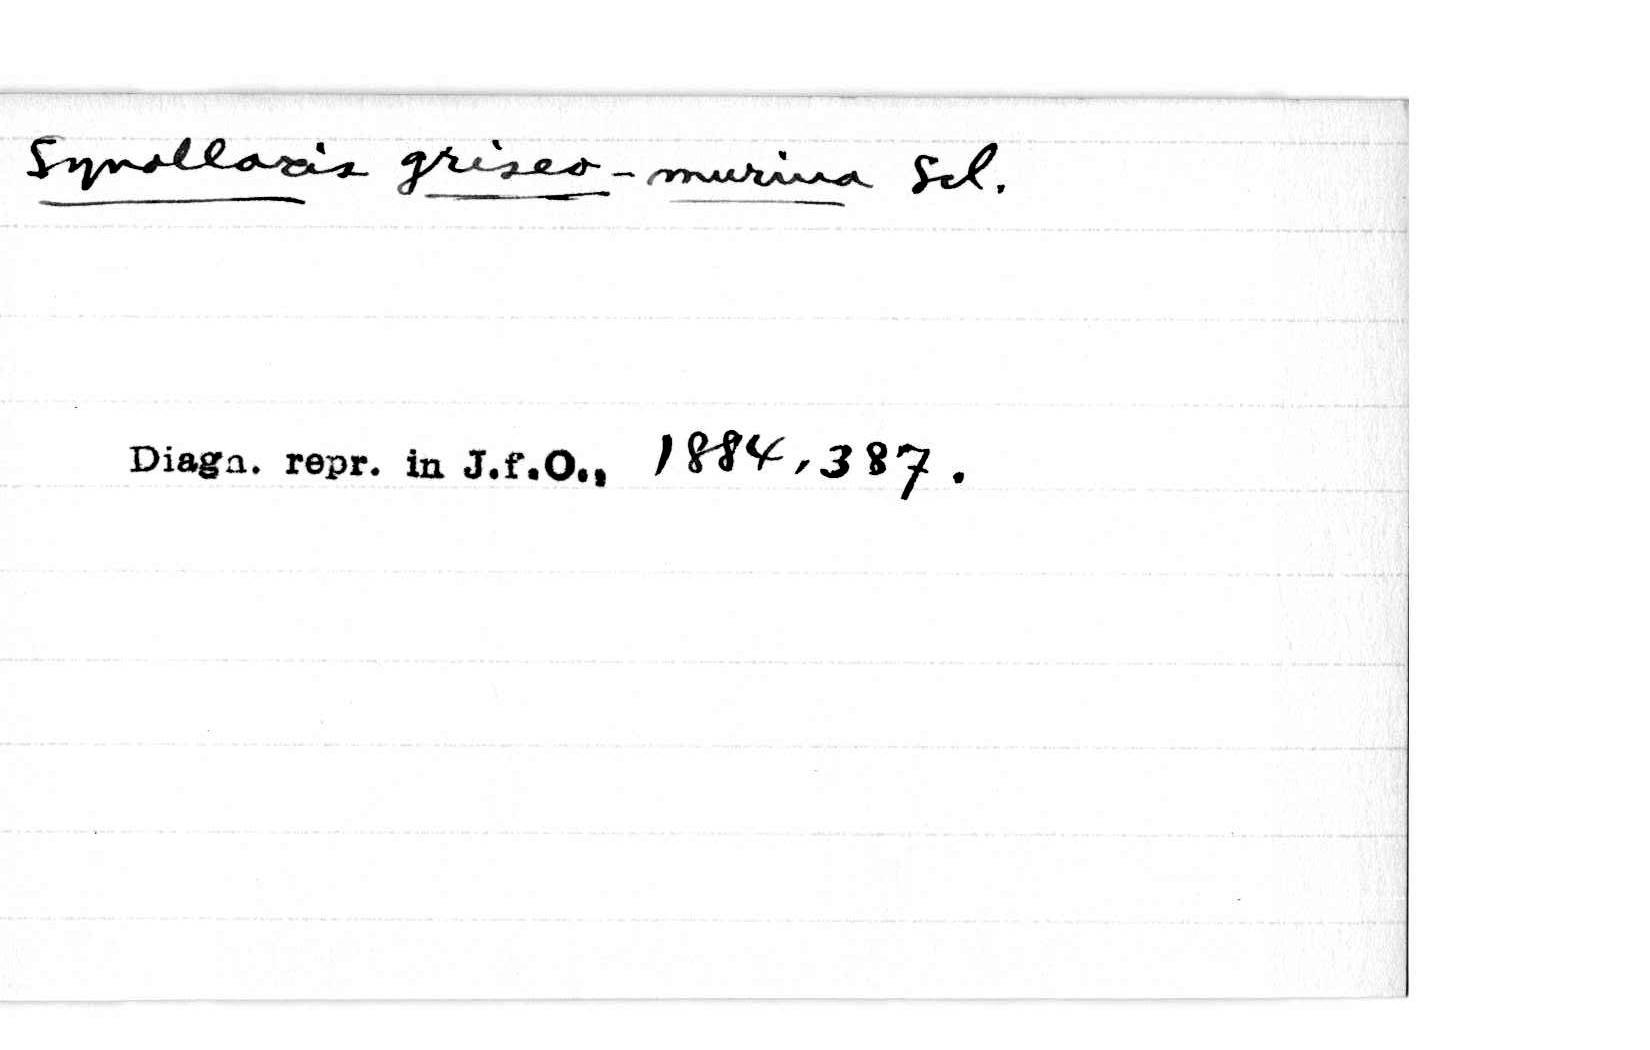 Synallaxis griseo-murina Scl.
Diagn. repr. in J.f.O., 1884, 387.